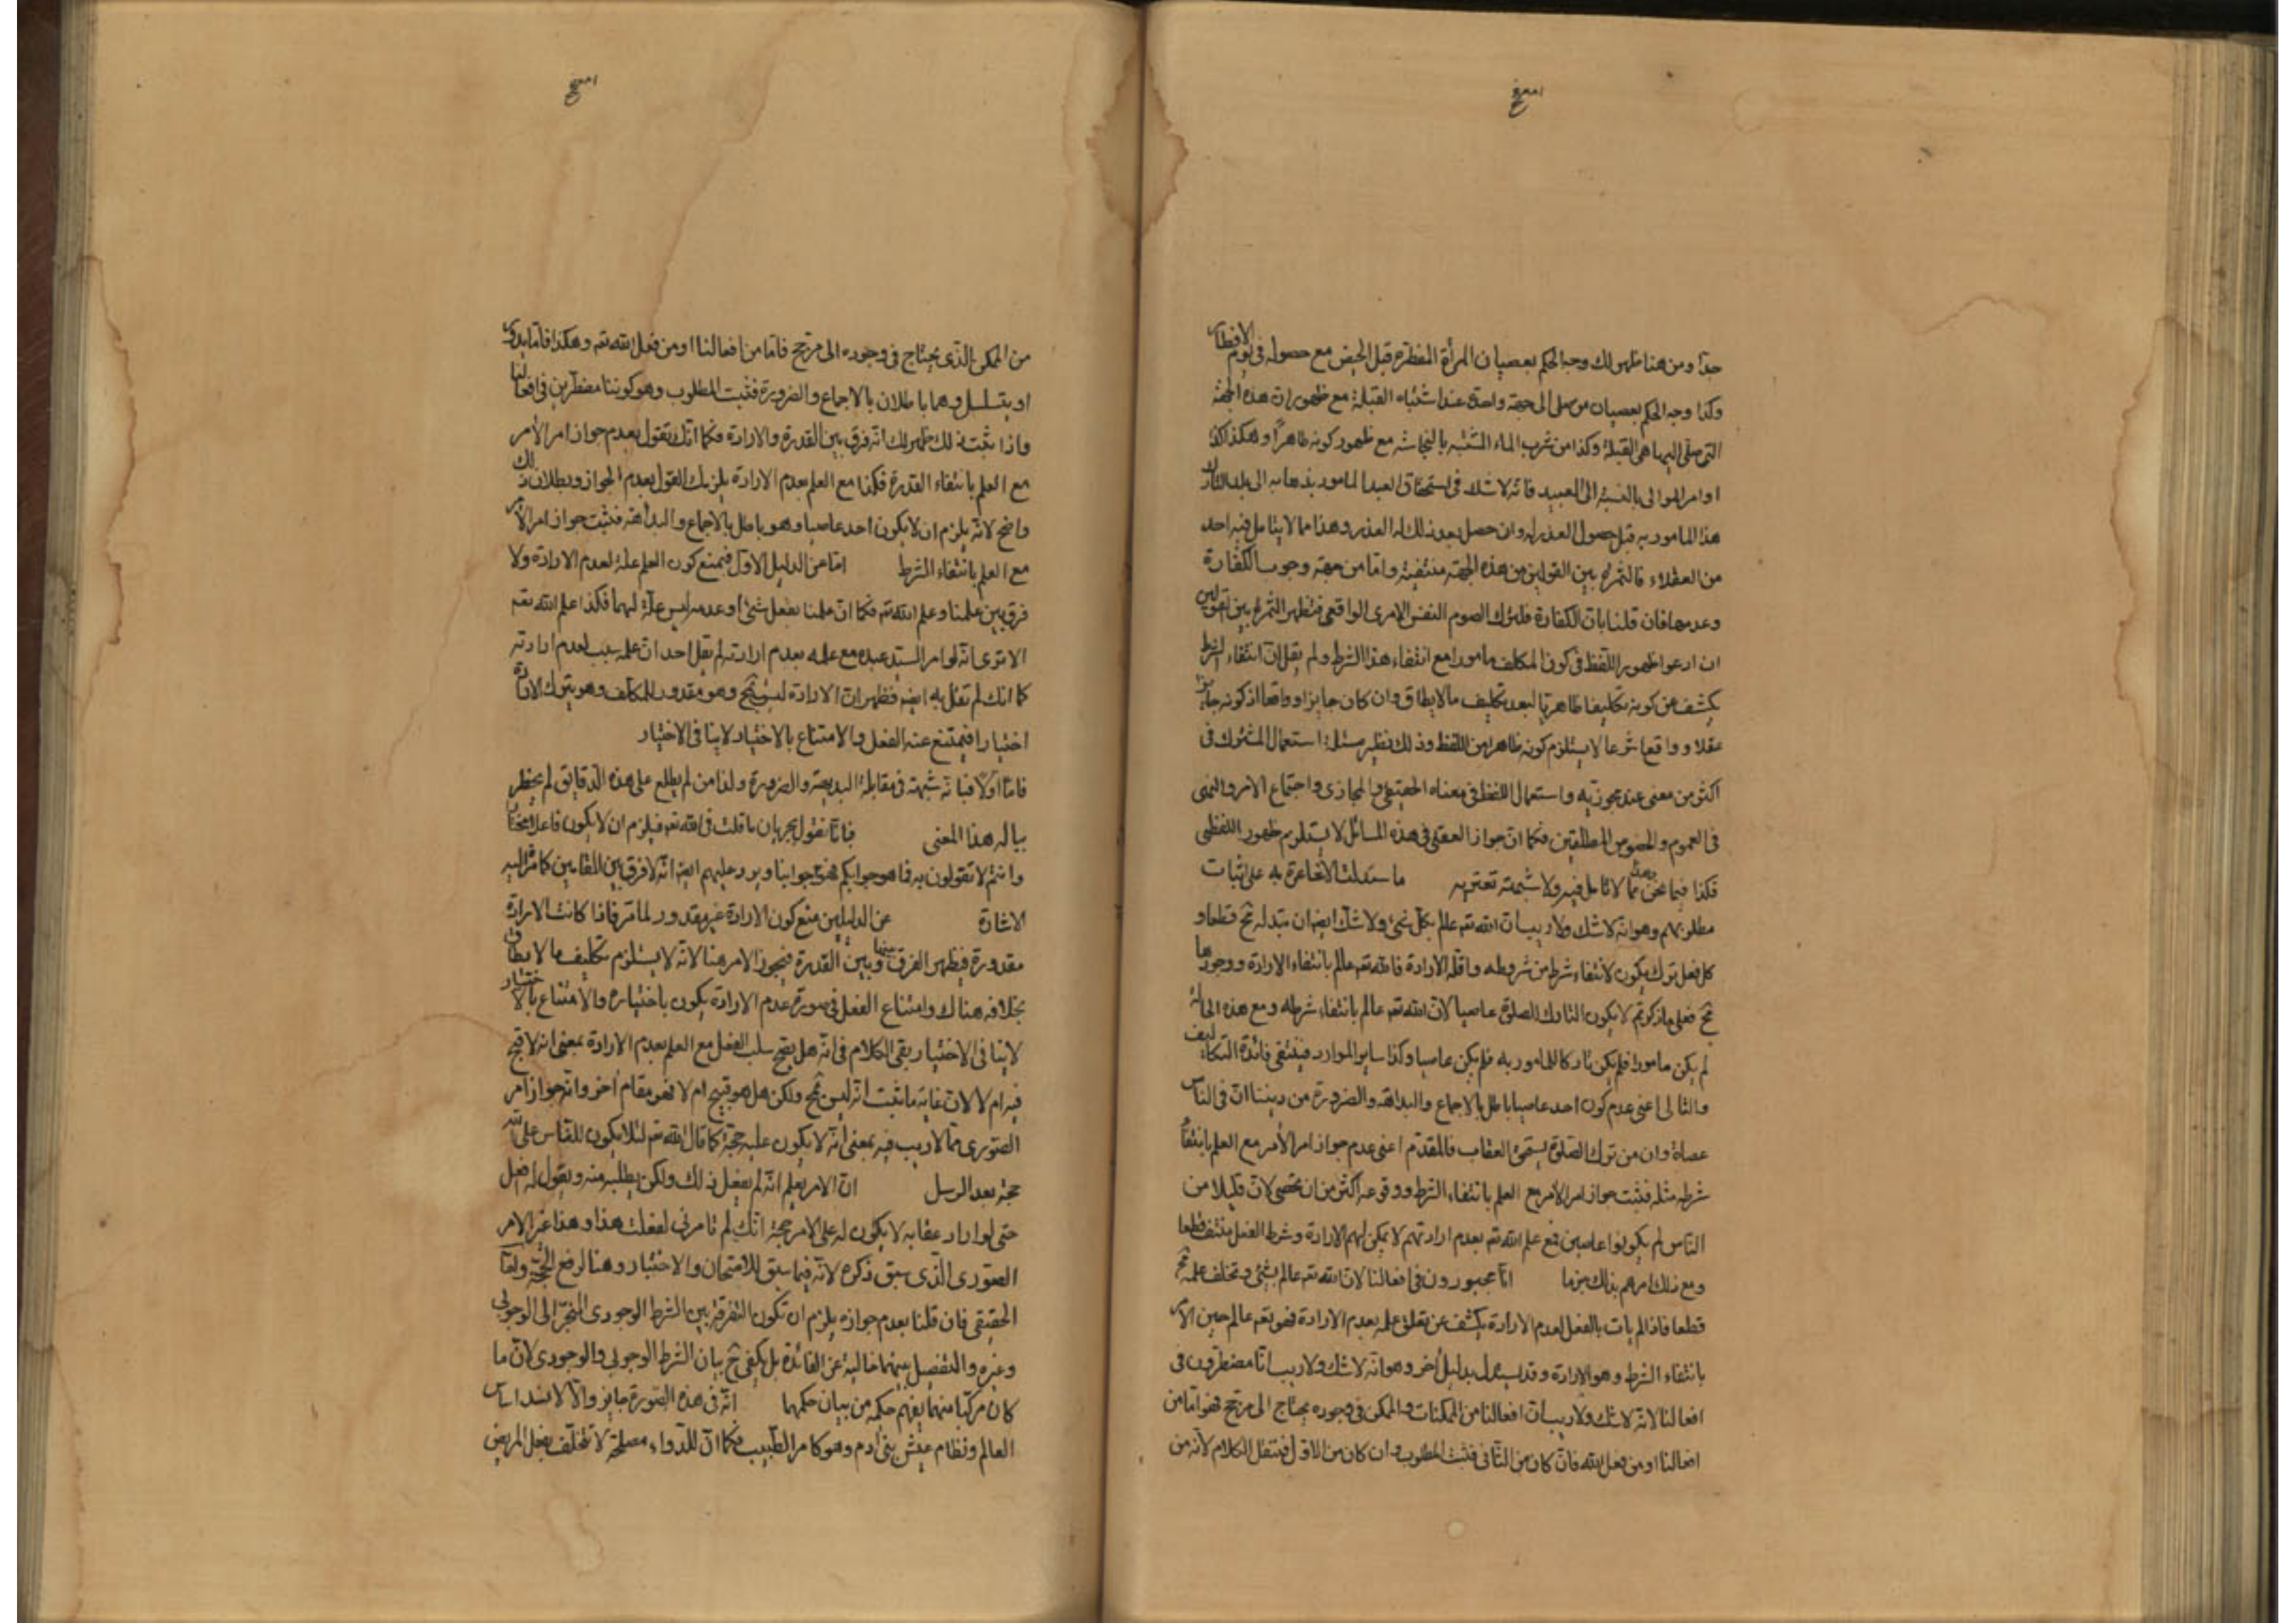 جدّا ومن هنا ظهر لك وجه الحكم بعصيان المرأة المفطرة قبل الحيض مع حصوله فى يوم الافطار
وكذا وجه الحكم بعصيان من صلى الى جهة واحدة عند اشتباه القبلة مع ظهور ان هذه الجهة
التى صلّى اليها هى القبلة وكذا من شرب الماء المشتبه بالنجاسة مع ظهور كونه طاهرًا وهكذا
اوامر الموالى بالنسبة الى العبيد فانّه لا شك فى استحقاق العبد المامور بذهابه الى بلد التارك
هذا المامور به قبل حصول العذر له وان حصل بعد ذلك له العذر وهذا مما لا يتامل فيه احد
من العقلاء فالثمرة بين القولين من هذه الجهة منتفية وامّا من جهة وجوب الكفارة
وعدمها فان قلنا بان الكفارة لترك الصوم النفس الامرى الواقعى فتظهر الثمرة بين القولين
ان ادعوا ظهور اللّفظ فى كون المكلف مامورا مع انتفاء هذا الشرط ولم يقل انّ انتفاء الشرط
يكشف عن كونه تكليفا ظاهريّا لبعد تكليف ما لا يطاق وان كان جايزا وواقعا اذ كونه جايزا
عقلا وواقعا شرعا لا يستلزم كونه ظاهرا من اللّفظ وذلك نظير مسئلة استعمال المشترك فى
اكثر من معنى عند مجوزيه واستعمال اللفظ فى معناه الحقيقى والمجازى واجتماع الامر والنهى
فى العموم والخصوص المطلقين فكما انّ جواز العقلى فى هذه المسائل لا يستلزم ظهور اللّفظى
فكذا فيما نحن فيه وهذا ممّا لا تامل فيه ولا شبهة تعتريه ما ستدلت الاشاعرة به على اثبات
مطلوبهم وهو انه لا شك ولا ريب ان اللّه تعم عالم بكلّ شئ ولا شكّ ايضا ان تبدله مح قطعا و
كل فعل ترك يكون لانتفاء شرط من شروطه واقله الارادة فاللّه تعم عالم بانتفاء الارادة ووجودها
مح فعلى ما ذكرتم لا يكون التارك الصلوة عاصيا لانّ اللّه تعم عالم بانتفاء شرطه ومع هذه الحالة
لم يكن مامورا فلم يكن تاركا للمامور به فلم يكن عاصيا وكذا ساير الموارد فينتفى فائدة التكليف
والتالى اعنى عدم كون احد عاصيا باطل بالاجماع والبداهة والضرورة من ديننا انّ فى الناس
عصاة وان من ترك الصّلوة يستحق العقاب فالمقدّم اعنى عدم جواز امر الآمر مع العلم بانتفاء
شرطه مثله فثبت جواز امر الآمر مع العلم بانتفاء الشرط ووقوعه اكثر من ان يحصى لانّ قليلا من
النّاس لم يكونوا عاصين فمع علم اللّه تعم بعدم ارادتهم لا يمكن لهم الارادة وشرط الفعل منتف قطعا
ومع ذلك امرهم بذلك جزما انّا مجبورون فى افعالنا لانّ اللّه تعم عالم بشئ وتخلف علمه مح
قطعا فاذا لم يات بالفعل لعدم الارادة يكشف عن تعلق علمه بعدم الارادة فهو تعم عالم حين الامر
بانتفاء الشرط وهو الارادة وقد استدل بدليل اخر وهو انّه لا شك ولا ريب انّا مضطرّون فى
افعالنا لانّه لا شك ولا ريب انّ افعالنا من الممكنات والممكن فى وجوده يحتاج الى مرجح فهو امّا من
افعالنا او من فعل اللّه فان كان من الثّانى فثبت المطلوب وان كان من الاول فننقل الكلام لأنّه من
من الممكن الّذى يحتاج فى وجوده الى مرجّح فامّا من افعالنا او من فعل اللّه تعم وهكذا فامّا يدور
او يتسلسل وهما باطلان بالاجماع والضرورة فثبت المطلوب وهو كوننا مضطرّين فى افعالنا
واذا ثبت ذلك ظهر لك انّه فرق بين القدرة والارادة فكما انّك تقول بعدم جواز امر الآمر
مع العلم بانتفاء القدرة فكذا مع العلم بعدم الارادة يلزمك القول بعدم الجواز وبطلان ذلك
واضح لانّه يلزم ان لا يكون احد عاصيا وهو باطل بالاجماع والبداهة فثبت جواز امر الآمر
مع العلم بانتفاء الشرط امّا عن الدليل الاوّل فبمنع كون العلم علّة لعدم الارادة ولا
فرق بين علمنا وعلم اللّه تعم فكما انّ علمنا بفعل شئ او عدمه ليس علّة لهما فكذا علم اللّه تعم
الا ترى انّه لو امر السيّد عبده مع علمه بعدم ارادته لم يقل احد انّ علمه سبب لعدم ارادته
كما انك لم تقل به ايضا فظهر انّ الارادة ليس بمح وهو مقدور للمكلّف وهو يترك الارادة
اختيارا فيمتنع عنه الفعل والامتناع بالاختيار لا ينافى الاختيار
فامّا اوّلا فبانّه شبهة فى مقابلة البديهة والضرورة ولذا من لم يطلع على هذه الدّقايق لم يخطر
بباله هذا المعنى فانّا نقول بجريان ما قلت فى اللّه تعم فيلزم ان لا يكون فاعلا مختارا
وانتم لا تقولون به فما هو جوابكم فهو جوابنا ويرد عليهم ايضا انّه لا فرق بين المقامين كما مرّ اليه
الاشارة عن الدليلين منع كون الارادة غير مقدور لما مرّ فاذا كانت الارادة
مقدورة فيظهر الفرق بينها وبين القدرة فيجوز الامر هنا لانّه لا يستلزم تكليف ما لا يطاق
بخلافه هناك وامتناع الفعل فى صورة عدم الارادة يكون باختياره والامتناع بالاختيار
لا ينافى الاختيار بقى الكلام فى انّه هل يقبح سلب الفعل مع العلم بعدم الارادة بمعنى انه لا قبح
فيه ام لا لانّ غاية ما ثبت انّه ليس بمح ولكن هل هو قبيح ام لا فهو مقام اخر وانّ جواز امر
الصّورى ممّا لا ريب فيه بمعنى انّه لا يكون عليه حجّة كما قال اللّه تعم لئلا يكون للنّاس على اللّه
حجة بعد الرسل انّ الامر يعلم انّه لم يفعل ذلك ولكن يطلبه منه ويقول له افعل
حتى لو اراد عقابه لا يكون له على الامر حجة انّك لم تامرنى لفعلت هذا وهذا غير الامر
الصّورى الّذى سبق ذكره لانّه فيما سبق للامتحان والاختبار وهنا لرفع الحجّة وامّا
الحقيقى فان قلنا بعدم جوازه يلزم ان تكون التفرقة بين الشرط الوجودى المنجرّ الى الوجوبى
وغيره والتفصيل بينهما خالية عن الفائدة بل يكفى ح بيان الشرط الوجوبى والوجودى لانّ ما
كان مركّبا منهما يفهم حكمه من بيان حكمهما انّه فى هذه الصّورة جايز والّا لانسد اساس
العالم ونظام عيش بنى آدم وهو كامر الطّبيب فكما انّ للدّواء مصلحة لا تتخلّف بفعل المريض